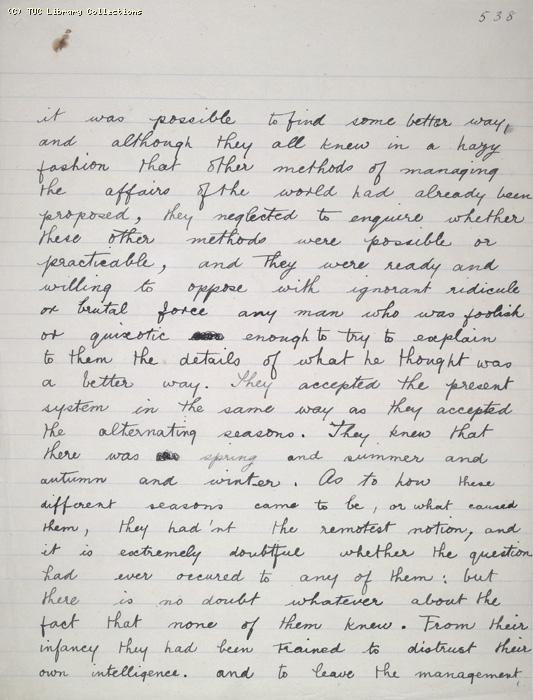 (C) TUC Library Collections
538
it was possible to find some better way,
and although they all knew in a hazy
fashion that other methods of managing
the affairs of the world had already been
proposed, they neglected to enquire whether
these other methods were possible or
practicable, and they were ready and
willing to oppose with ignorant ridicule
or brutal force any man who was foolish
or quixotic enough to try to explain
to them the details of what he thought was
a better way. They accepted the present
system in the same way as they accepted
the alternating seasons. They knew that
there was spring and summer and
autumn and winter. As to how these
different seasons came to be, or what caused
them, they had'nt the remotest notion, and
it is extremely doubtful whether the question
had ever occured to any of them: but
there is no doubt whatever about the
fact that none of them knew. From their
infancy they had been trained to distrust their
own intelligence. and to leave the management